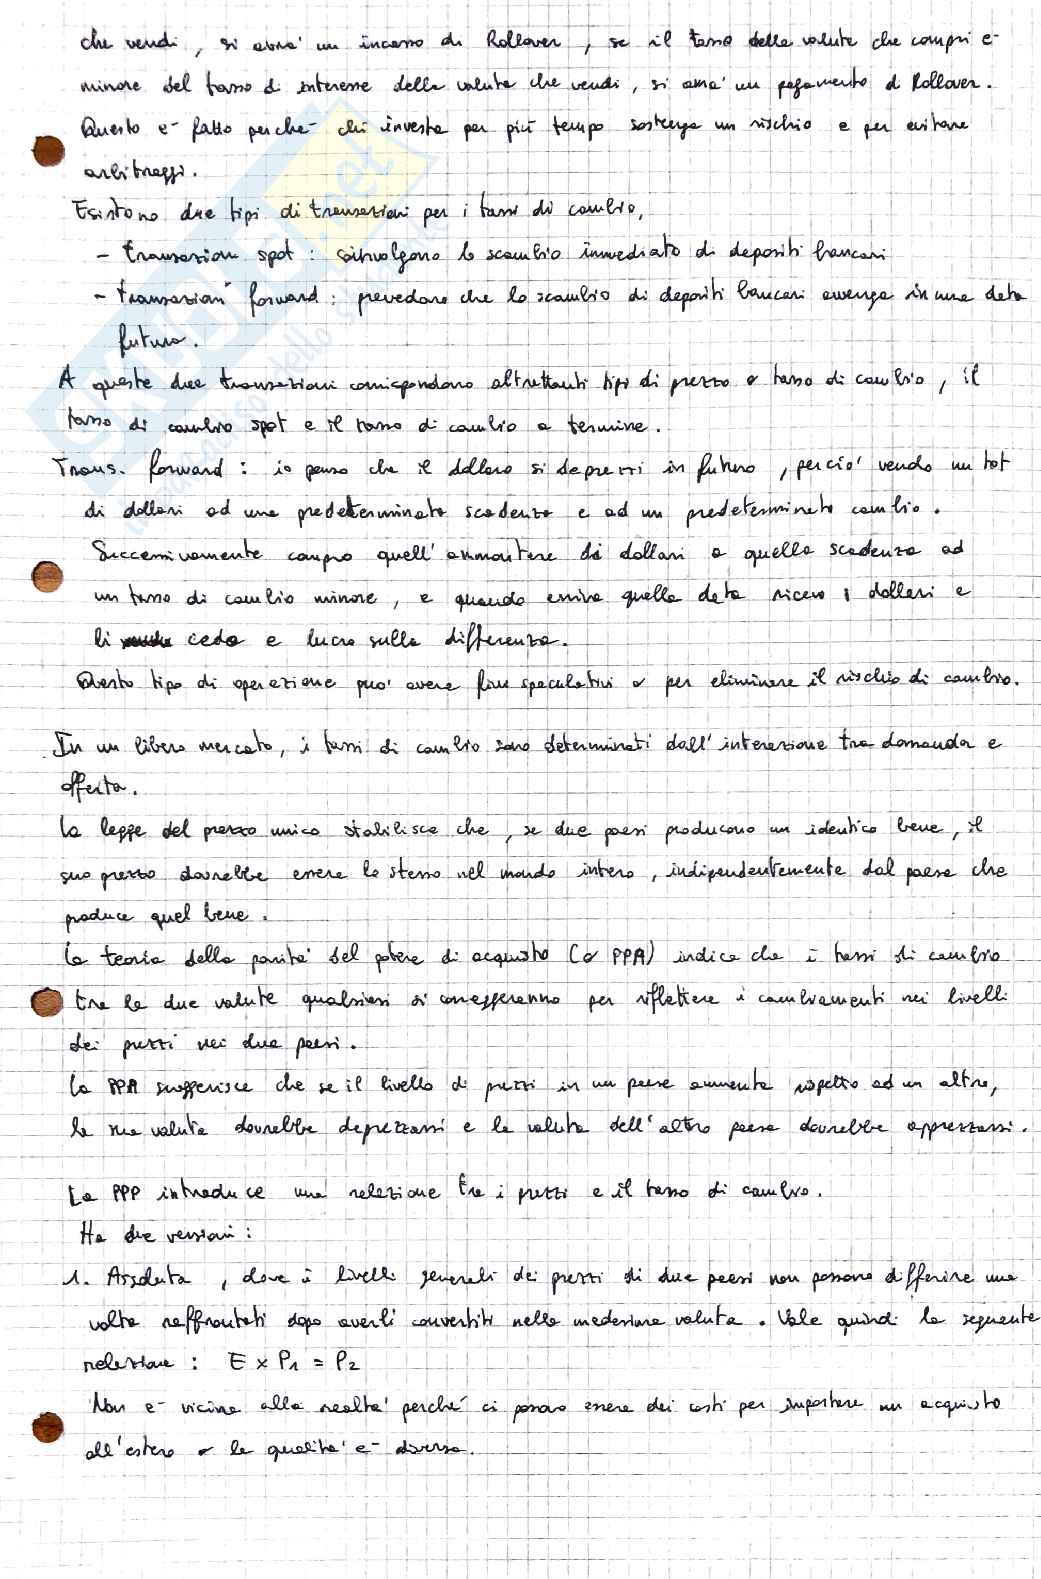 che vendi, si avra' un incasso di Rollover, se il tasso della valuta che compri e'
minore del tasso di interesse della valuta che vendi, si avra' un pagamento di Rollover.
Questo e' fatto perche' chi investe per più tempo sostenga un rischio e per evitare
arbitraggi.
Esistono due tipi di transazioni per i tassi di cambio,
- transazioni spot : coinvolgono lo scambio immediato di depositi bancari
- transazioni forward : prevedono che lo scambio di depositi bancari avvenga in una data
futura.
A queste due transazioni corrispondono altrettanti tipi di prezzo o tasso di cambio, il
tasso di cambio spot e il tasso di cambio a termine.
Trans. forward : io penso che il dollaro si deprezzi in futuro, percio' vendo un tot
di dollari ad una predeterminata scadenza e ad un predeterminato cambio.
Successivamente compro quell'ammontare di dollari a quella scadenza ad
un tasso di cambio minore, e quando arriva quella data ricevo i dollari e
li cedo e lucro sulla differenza.
Questo tipo di operazione puo' avere fini speculativi o per eliminare il rischio di cambio.
In un libero mercato, i tassi di cambio sono determinati dall'interazione tra domanda e
offerta.
La legge del prezzo unico stabilisce che, se due paesi producono un identico bene, il
suo prezzo dovrebbe essere lo stesso nel mondo intero, indipendentemente dal paese che
produce quel bene.
La teoria della parita' del potere di acquisto (o PPA) indica che i tassi di cambio
tra le due valute qualsiasi si correggeranno per riflettere i cambiamenti nei livelli
dei prezzi nei due paesi.
La PPA suggerisce che se il livello di prezzi in un paese aumenta rispetto ad un altro,
la sua valuta dovrebbe deprezzarsi e la valuta dell'altro paese dovrebbe apprezzarsi.
La PPP introduce una relazione tra i prezzi e il tasso di cambio.
Ha due versioni :
1. Assoluta, dove i livelli generali dei prezzi di due paesi non possono differire una
volta raffrontati dopo averli convertiti nella medesima valuta. Vale quindi la seguente
relazione : E x P1 = P2
Non e' vicina alla realta' perché ci possono essere dei costi per importare un acquisto
all'estero o la qualita' e' diversa.